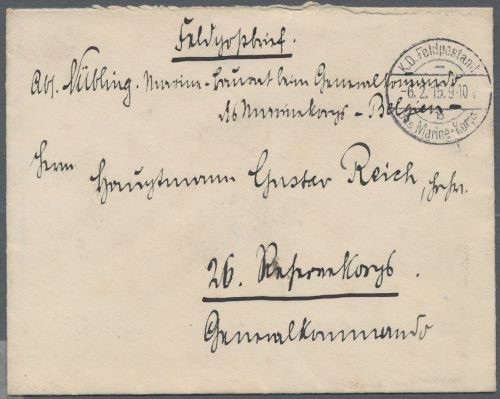 Feldpostbrief.
Abs. Nübling. Marine-Baurat beim Generalkommando
des Marinekorps - Belgien -
K.D. Feldpostamt
-6.2.15.9-10V
b
des Marine-Korps
Herrn
Hauptmann Gustav Reich,
26. Reservekorps.
Generalkommando